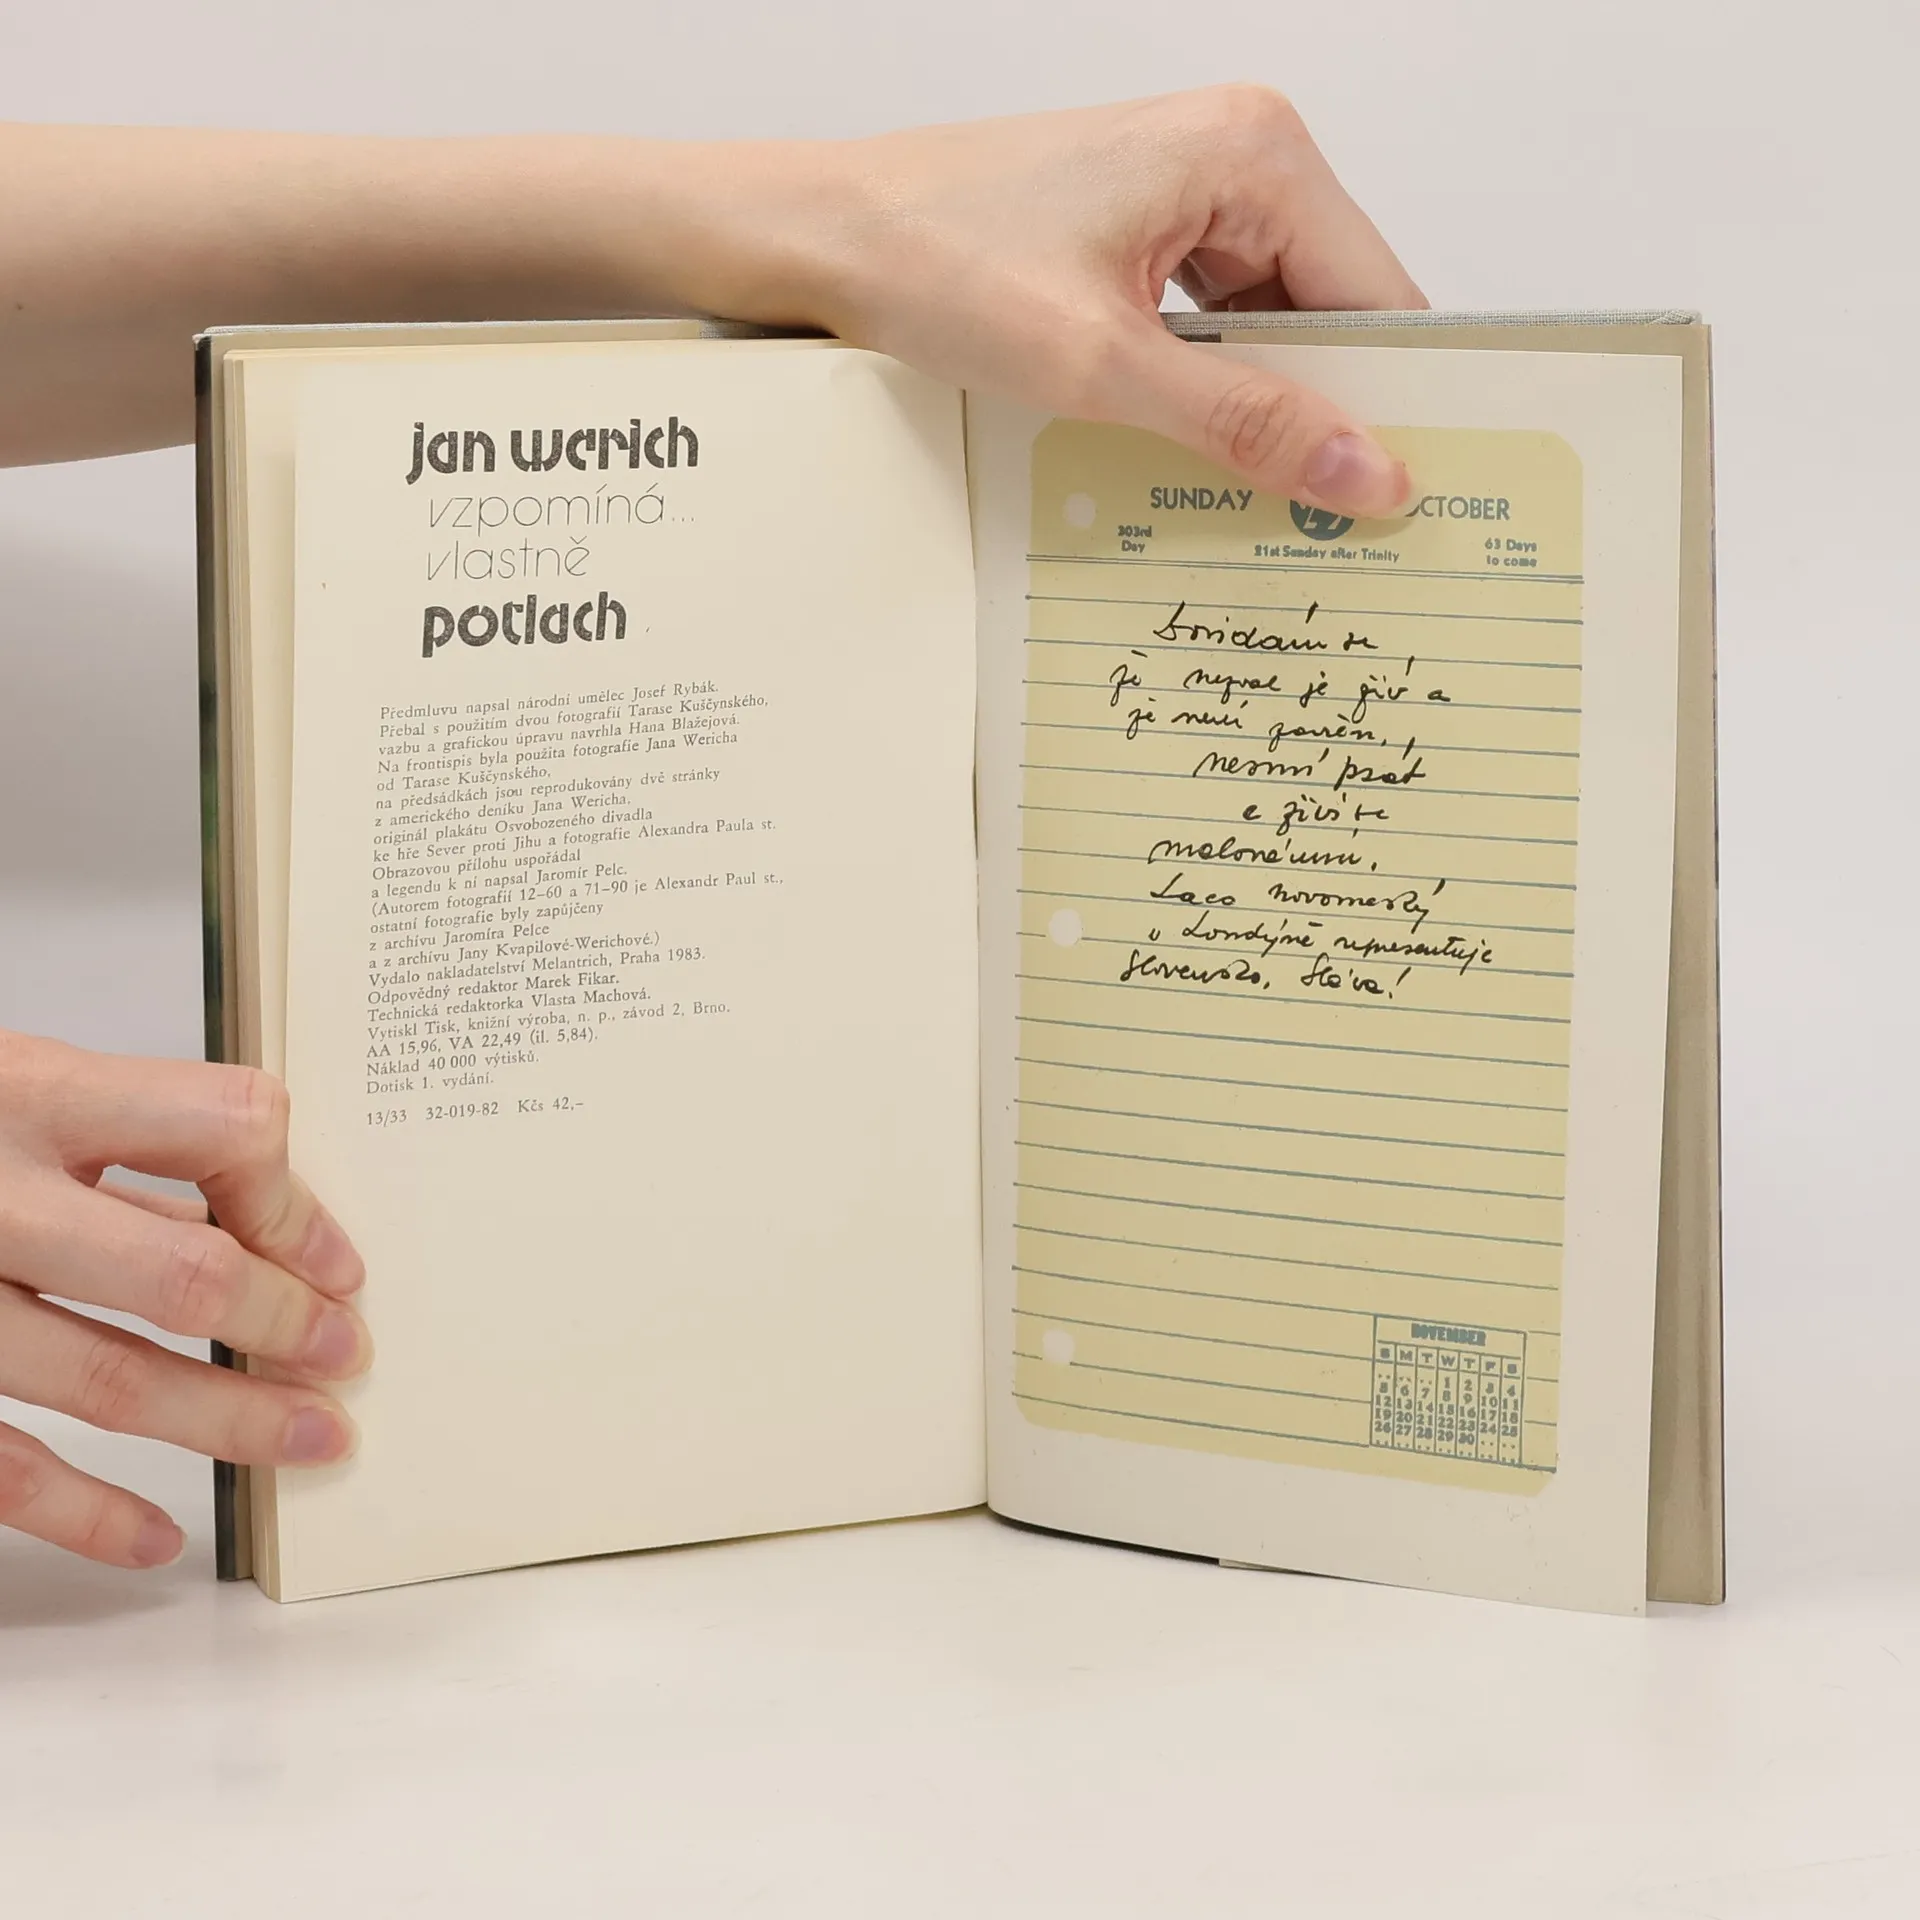 jan werich
vzpomíná...
vlastně
potlach
Předmluvu napsal národní umělec Josef Rybák.
Přebal s použitím dvou fotografií Tarase Kuščynského,
vazbu a grafickou úpravu navrhla Hana Blažejová.
Na frontispis byla použita fotografie Jana Wericha
od Tarase Kuščynského,
na předsádkách jsou reprodukovány dvě stránky
z amerického deníku Jana Wericha,
originál plakátu Osvobozeného divadla
ke hře Sever proti Jihu a fotografie Alexandra Paula st.
Obrazovou přílohu uspořádal
a legendu k ní napsal Jaromír Pelc.
(Autorem fotografií 12–60 a 71–90 je Alexandr Paul st.,
ostatní fotografie byly zapůjčeny
z archívu Jaromíra Pelce
a z archívu Jany Kvapilové-Werichové.)
Vydalo nakladatelství Melantrich, Praha 1983.
Odpovědný redaktor Marek Fikar.
Technická redaktorka Vlasta Machová.
Vytiskl Tisk, knižní výroba, n. p., závod 2, Brno.
AA 15,96, VA 22,49 (il. 5,84).
Náklad 40 000 výtisků.
Dotisk 1. vydání.
13/33 32-019-82 Kčs 42,–
SUNDAY OCTOBER
303rd Day 21st Sunday after Trinity 63 Days to come
Dovídám se,
že nezval je živ a
že není zavřen,
nesmí psát
a živí se
malováním.
Laco novomeský
v Londýně representuje
Slovensko. Sláva!
NOVEMBER
S M T W T F S
.. .. .. 1 2 3 4
5 6 7 8 9 10 11
12 13 14 15 16 17 18
19 20 21 22 23 24 25
26 27 28 29 30 .. ..